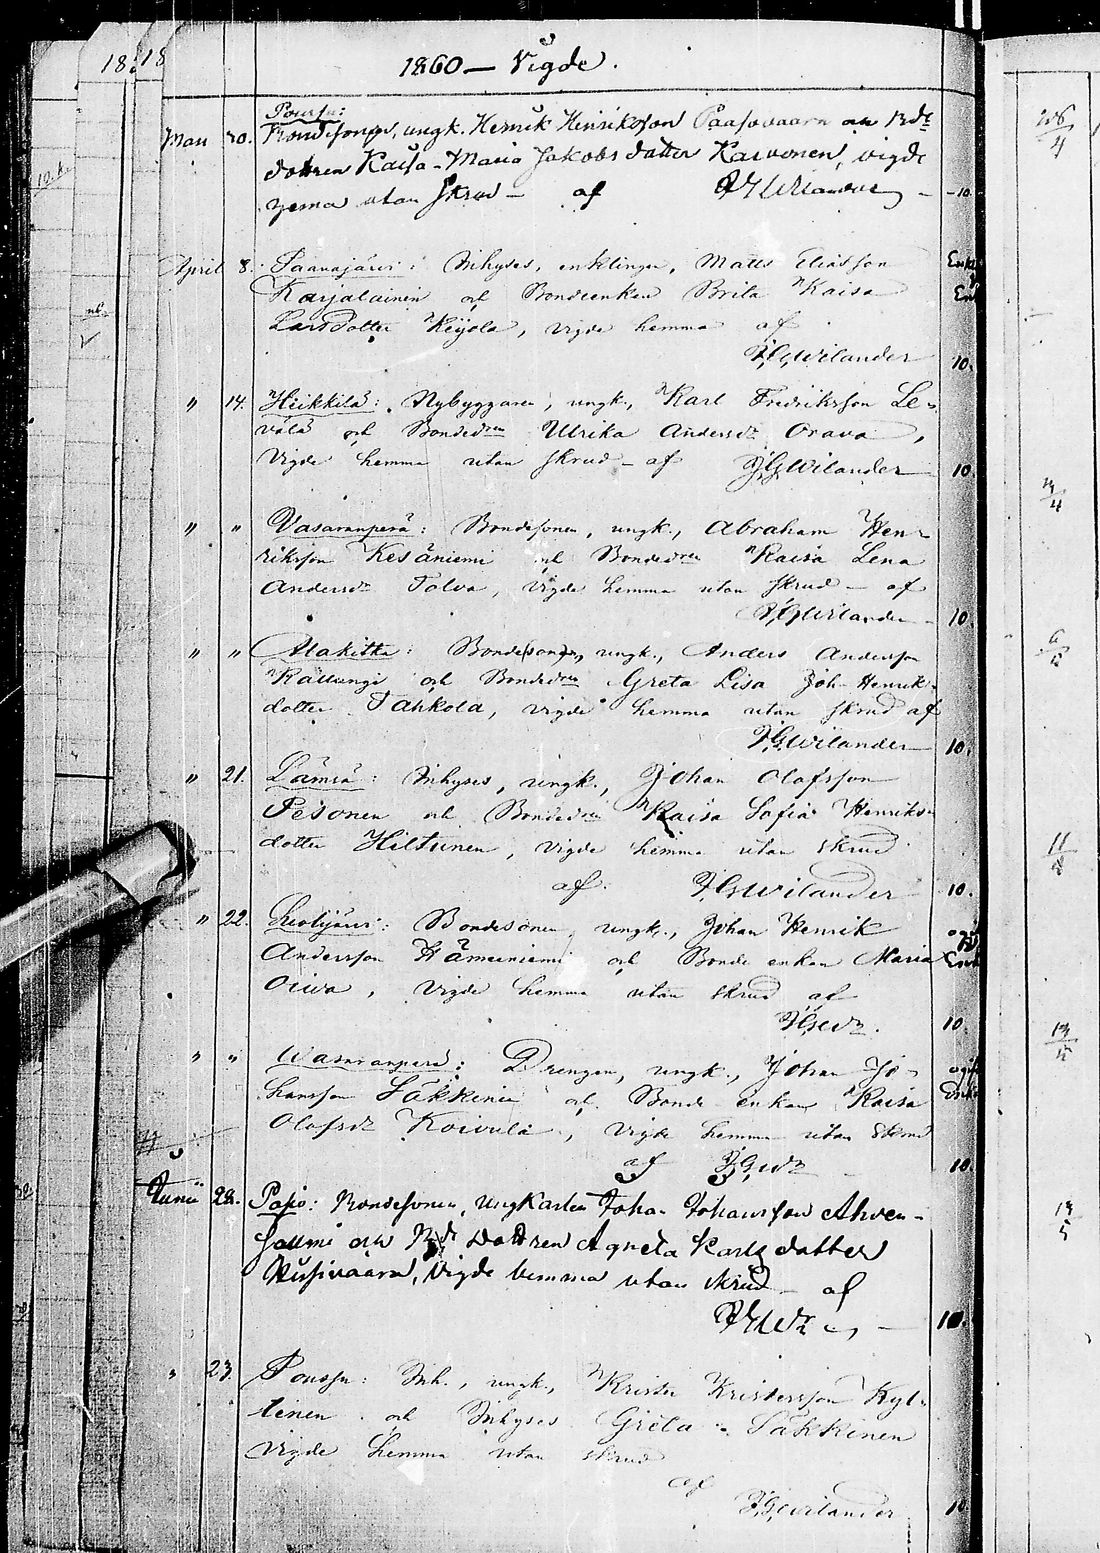 1860 — Vigde.
Poussu:
Mars 20. Bondesonen, ungk. Henrik Henriksson Paasovaara och Bde
dottren Kaisa-Maria Jakobsdotter Karvonen, vigde
hemma utan skrud — af JGWilander — 10.
April 8. Saarajärvi: Inhyses, enklingen, Matts Eliasson Enkl.
Karjalainen och Bondeenkan Brita Kaisa Enk
Larsdotter Keijola, vigde hemma af
JGWilander 10.
" 14. Heikkilä: Nybyggaren, ungk., Karl Fredriksson Le-
välä och Bondedren Ulrika Andersdr Orava,
vigde hemma utan skrud — af JGWilander 10.
" " Vasaranperä: Bondesonen, ungk., Abraham Hen-
riksson Kesäniemi och Bondedren Kaisa Lena
Andersdr Tolva, vigde hemma utan skrud — af
JGWilander 10.
" " Alakitka: Bonde(son)en, ungk., Anders Andersson
Källunge och Bondedren Greta Lisa Joh. Henrik-
dotter Tahkola, vigde hemma utan skrud af
JGWilander 10.
" 21. Lämsä: Inhyses, ungk., Johan Olofsson
Pesonen och Bondedren Kaisa Sofia Henriks-
dotter Hiltunen, vigde hemma utan skrud
af JGWilander 10.
" 22. Suolijärvi: Bondesonen, ungk., Johan Henrik ogift
Andersson Hämeiniemi och Bonde enkan Maria Enk
Oiva, vigde hemma utan skrud af
JGWr. 10.
" " Wasaranperä: Drengen, ungk., Johan Jo- ogift
hansson Säkkinen och Bonde enkan Kaisa Enka
Olofsdr Koivula, vigde hemma utan skrud
af JGWr 10.
Junii 22. Posio: Bondesonen, ungkarlen Johan Johansson Ahven-
salmi och Bde dottren Agneta Karlsdotter
Kusivaara, vigde hemma utan skrud — af
JGWr — 10.
" 23. Poussu: Inh., ungk., Krister Kristersson Kyl-
tinen och Inhyses Greta Säkkinen
vigde hemma utan skrud
af
JGWilander 10